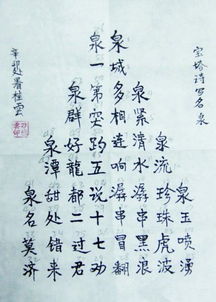 宝塔诗写名泉
泉玉喷涌
泉流珍珠虎波
泉紧清水潺串黑浪
泉城多相连响潺串冒翻
泉一第空趵五说十七劝
泉群好龍都二过君
泉潭甜处错来
泉名莫济
辛卯处暑桂雲